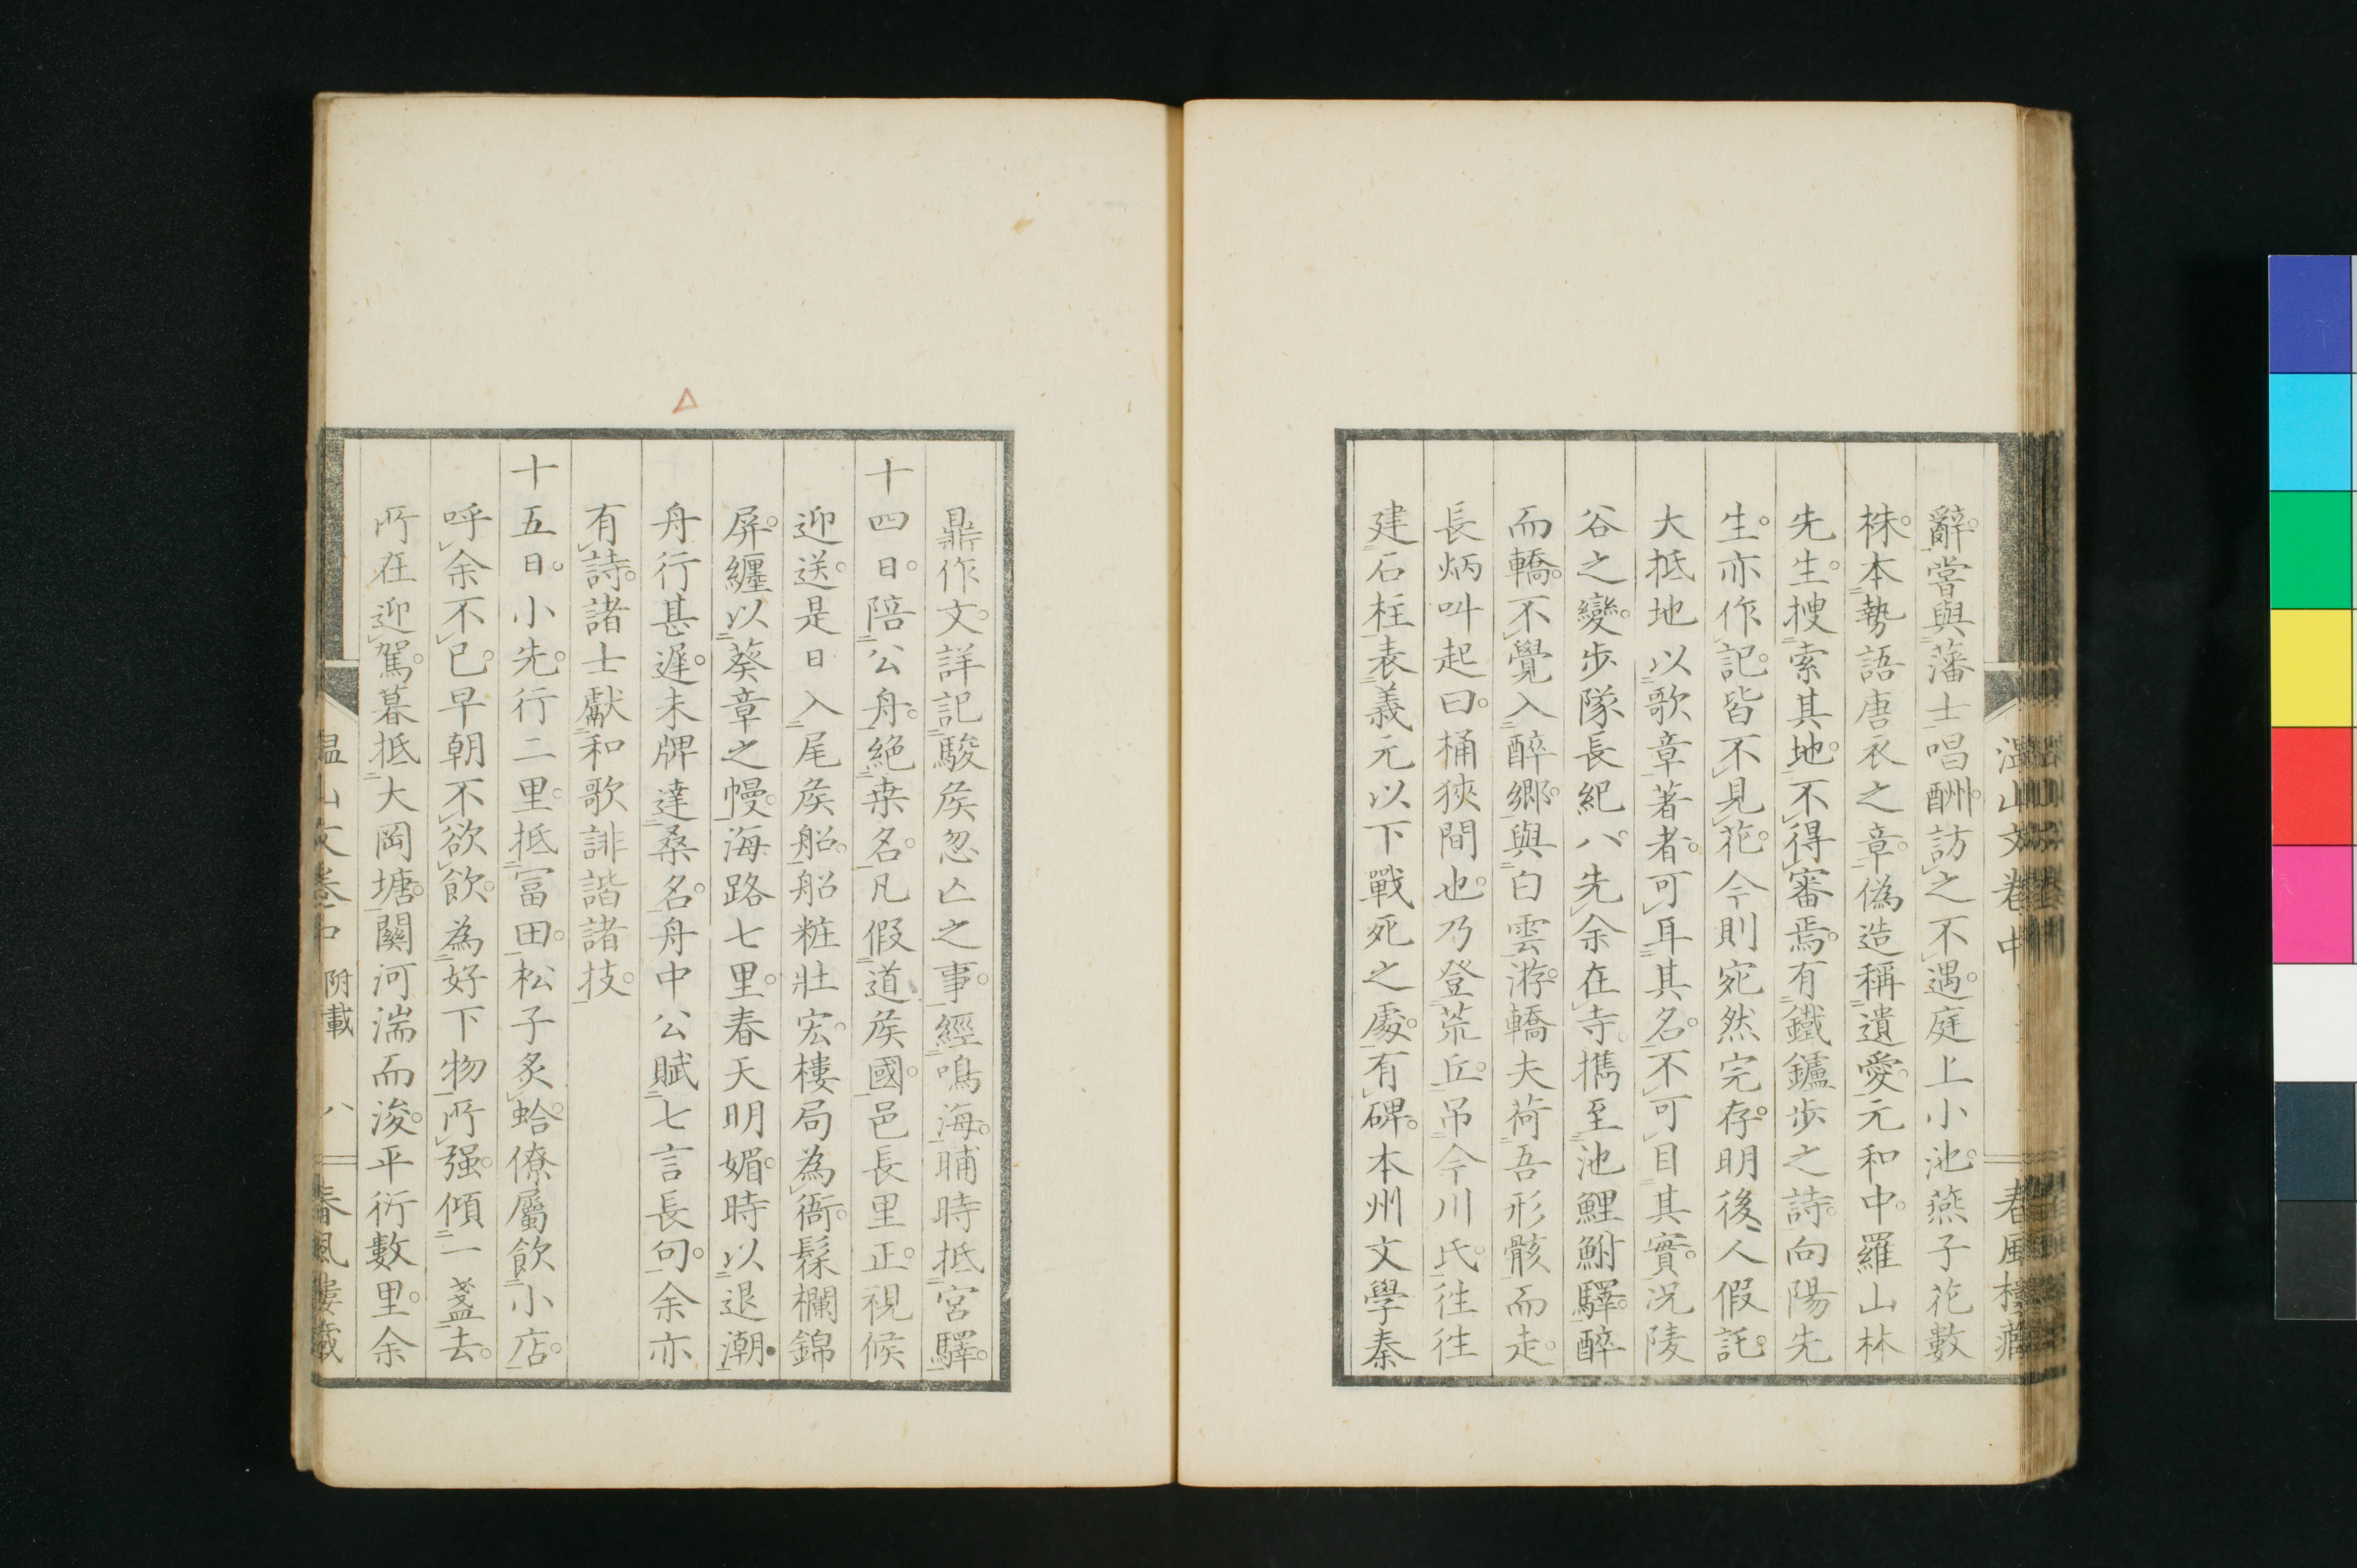 溫山文卷中
春風樓藏
辭。嘗與藩士唱酬。訪之不遇。庭上小池。燕子花數
株。本勢語唐衣之章。偽造稱遺愛。元和中。羅山林
先生。搜索其地。不得審焉。有鐵鑪步之詩。向陽先
生。亦作記。皆不見花。今則宛然完存。明後人假託。
大抵地以歌章著者。可耳其名。不可目其實。況陵
谷之變。步隊長紀八。先余在寺。携至池鯉鮒驛。醉
而轎。不覺入醉鄉。與白雲游。轎夫荷吾形骸而走。
長炳叫起曰。桶狹間也。乃登荒丘。吊今川氏。往往
建石柱。表義元以下戰死之處。有碑。本州文學秦
鼎作文。詳記駿侯忽亡之事。經鳴海。晡時抵宮驛。
十四日。陪公舟。絕桒名。凡假道侯國。邑長里正。視候
迎送。是日入尾侯船。船粧壯宏。樓局為衙。髹欄錦
屏。纏以葵章之幔。海路七里。春天明媚。時以退潮。
舟行甚遲。未牌達桑名。舟中公賦七言長句。余亦
有詩。諸士獻和歌誹諧諸技。
十五日。小先。行二里。抵冨田。松子炙蛤。僚屬飲小店。
呼余不已。早朝不欲飲。為好下物所强。傾一盞去。
所在迎駕。暮抵大岡塘。關河湍而浚。平衍數里。余
溫山文卷中 附載 八
春風樓藏